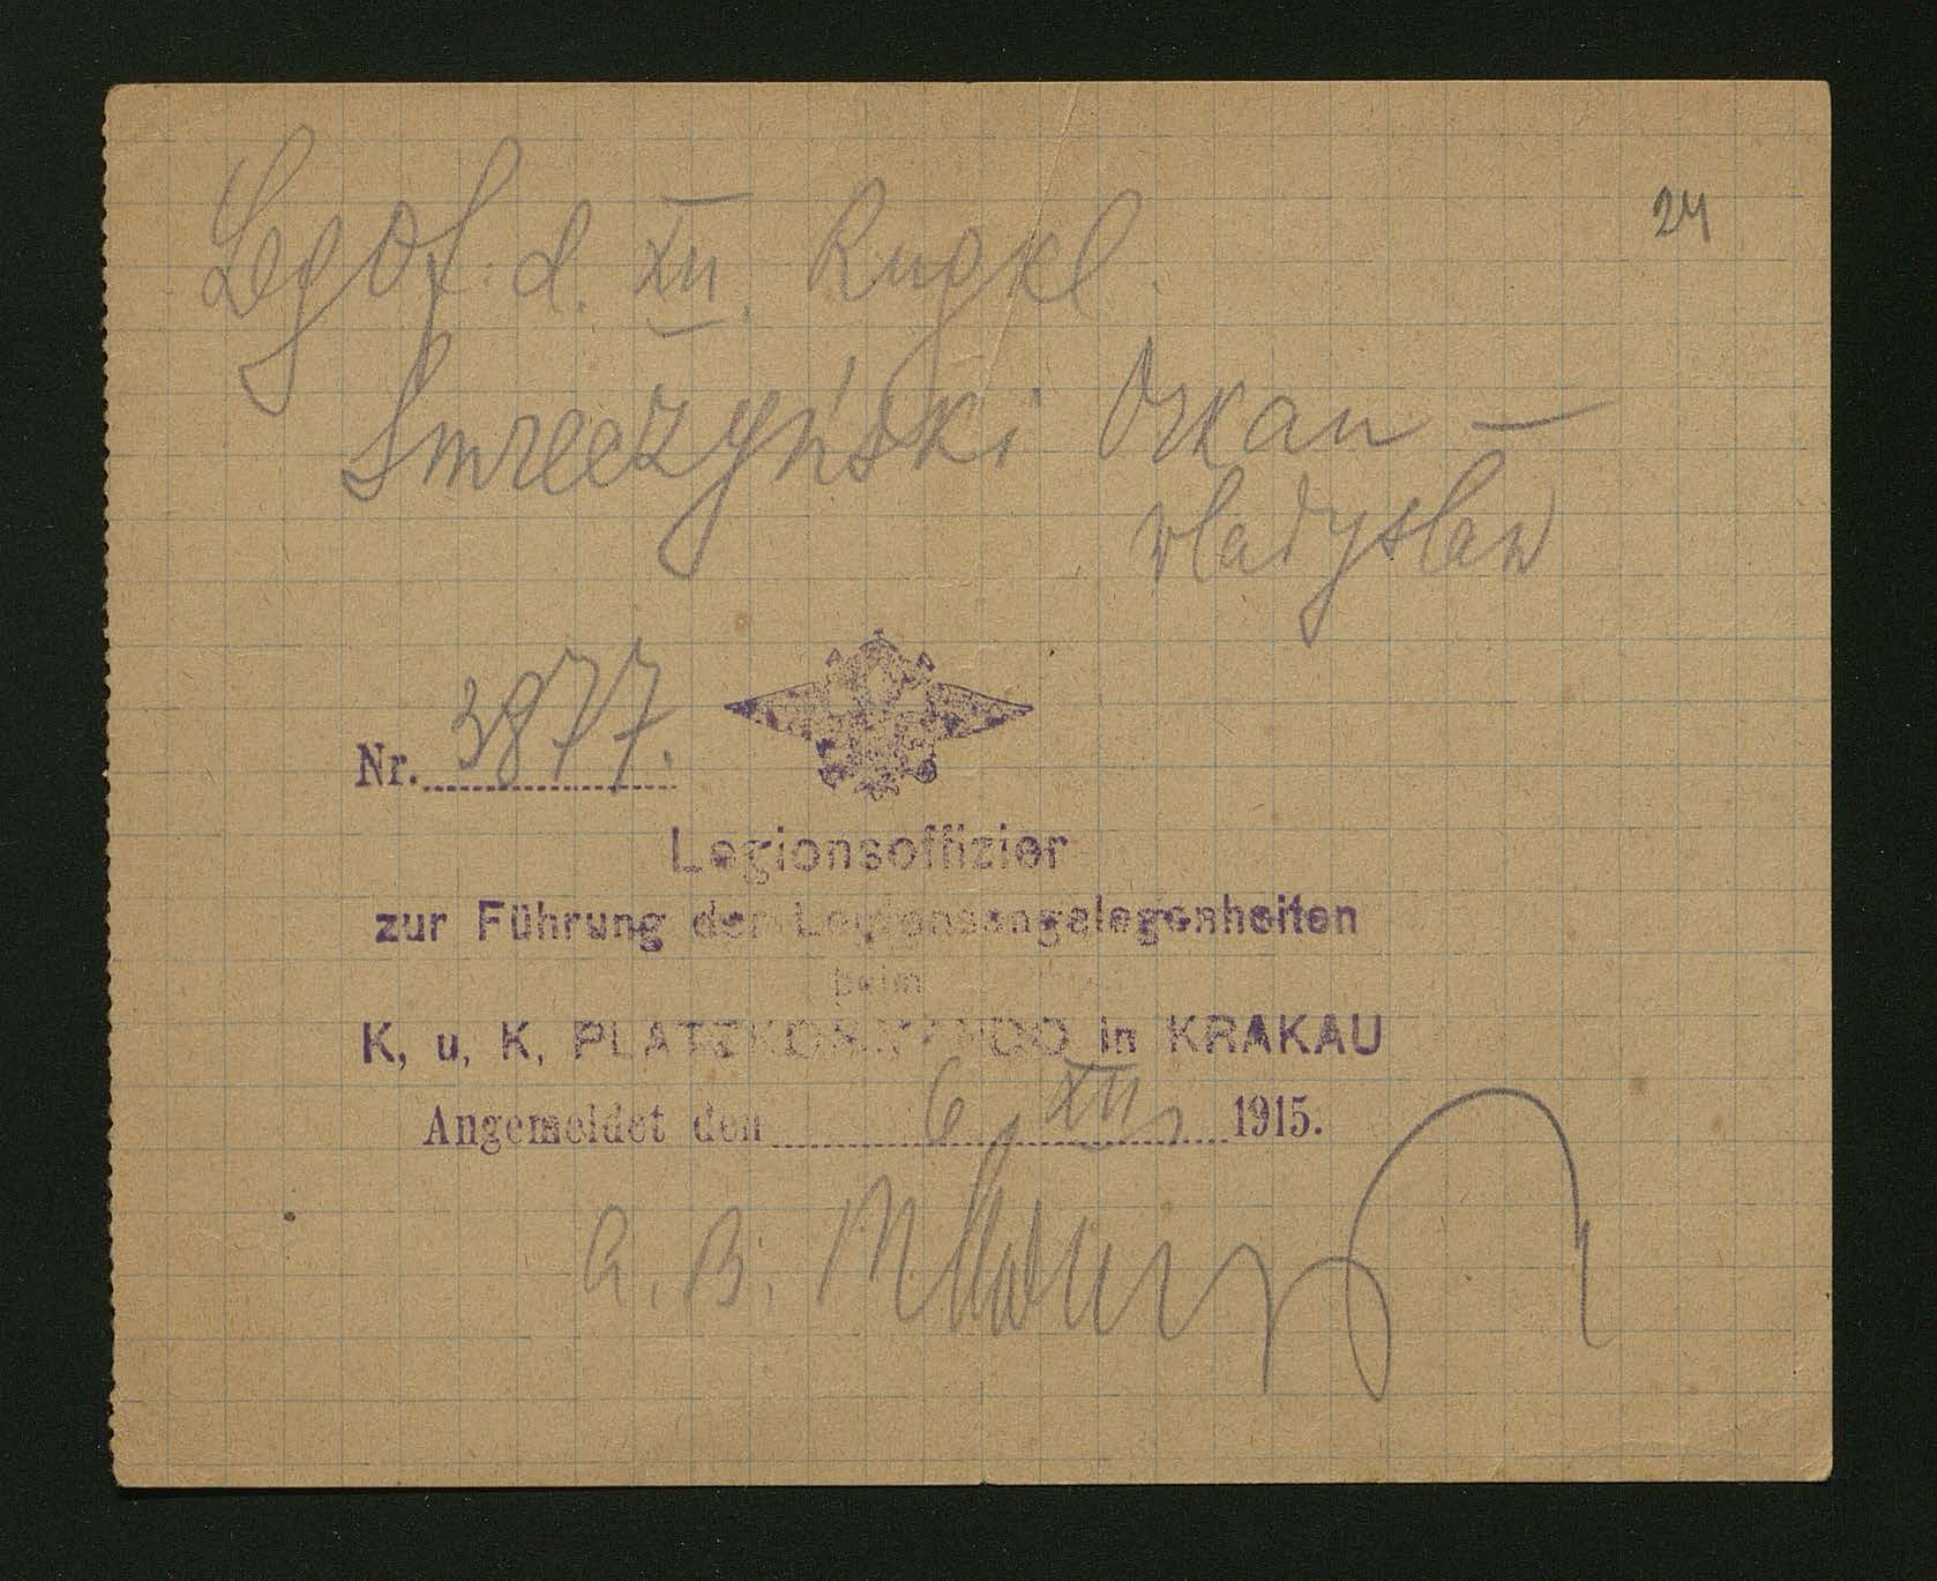 24
LegOf. d. XII. Rngkl.
Smreczyński Orkan —
Vladyslaw
Nr. 3877.
Legionsoffizier
zur Führung der Legionsangelegenheiten
beim
K. u. K. PLATZKOMMANDO in KRAKAU
Angemeldet den 6 / XII 1915.
A. B.